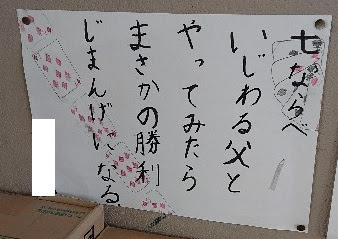 七ならべ
いじわる父と
やってみたら
まさかの勝利
じまんげになる